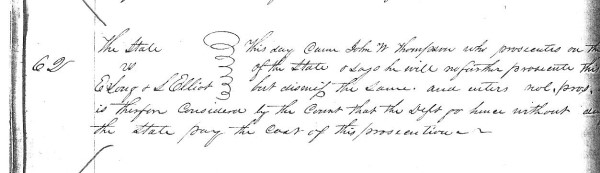 The State This day came John W Thompson who prosecutes on the
62 vs of the State & says he will no further prosecute this
E Long & S Elliot but dismiss the same. and enters nol. pros.
is therefore considered by the Court that the Deft go hence without
the State pay the cost of this prosecution